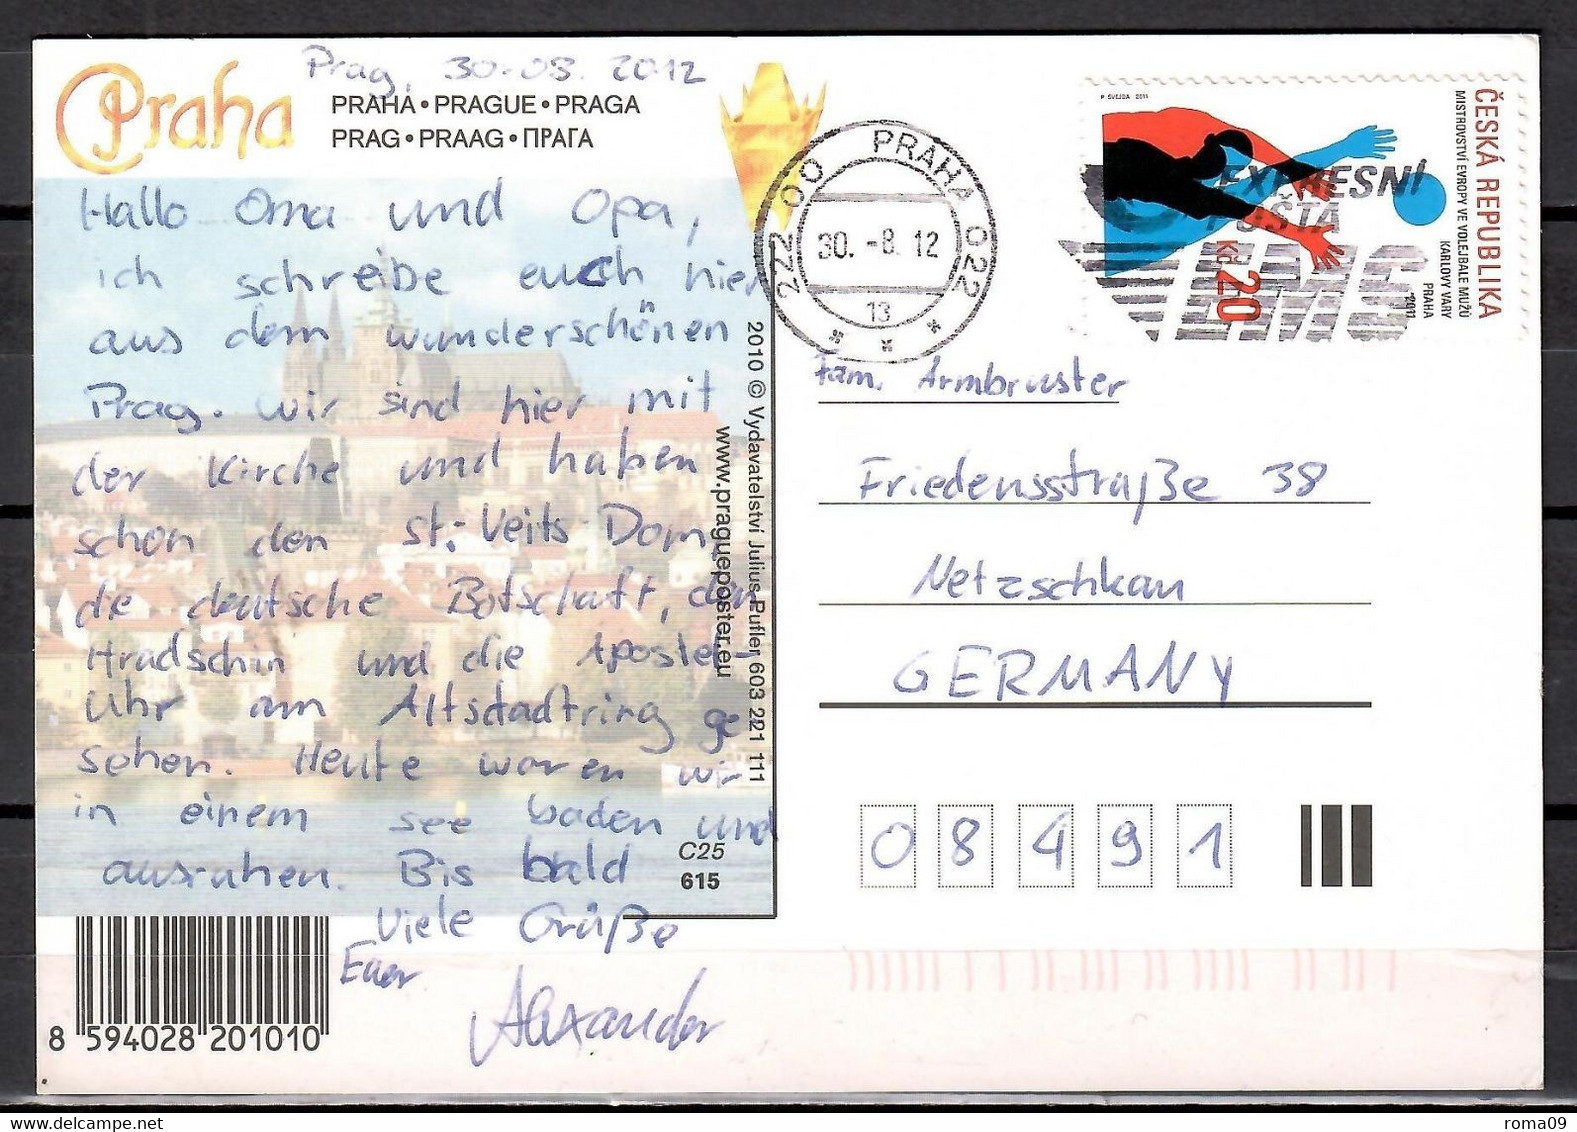 Praha
Prag, 30.08.2012
PRAHA • PRAGUE • PRAGA
PRAG • PRAAG • ПРАГА
Hallo Oma und Opa,
ich schreibe euch hier
aus dem wunderschönen
Prag. Wir sind hier mit
der Kirche und haben
schon den St. Veits Dom,
die deutsche Botschaft, den
Hradschin und die Apostel-
Uhr am Altstadtring ge-
sehen. Heute waren wir
in einem See baden und
ausruhen. Bis bald
Viele Grüße
Euer
Alexander
2010 © Vydavatelství Julius Pufler 603 221 111
www.pragueposter.eu
C25
615
8 594028 201010
222 00 PRAHA 022
30. -8. 12
13
* * *
P. ŠVEJDA 2011
ČESKÁ REPUBLIKA
MISTROVSTVÍ EVROPY VE VOLEJBALE MUŽŮ
KARLOVY VARY
PRAHA
2011
Kč 20
EXPRESNÍ
POŠTA
EMS
Fam. Armbruster
Friedensstraße 38
Netzschkau
GERMANY
08491
roma09
delcampe.net